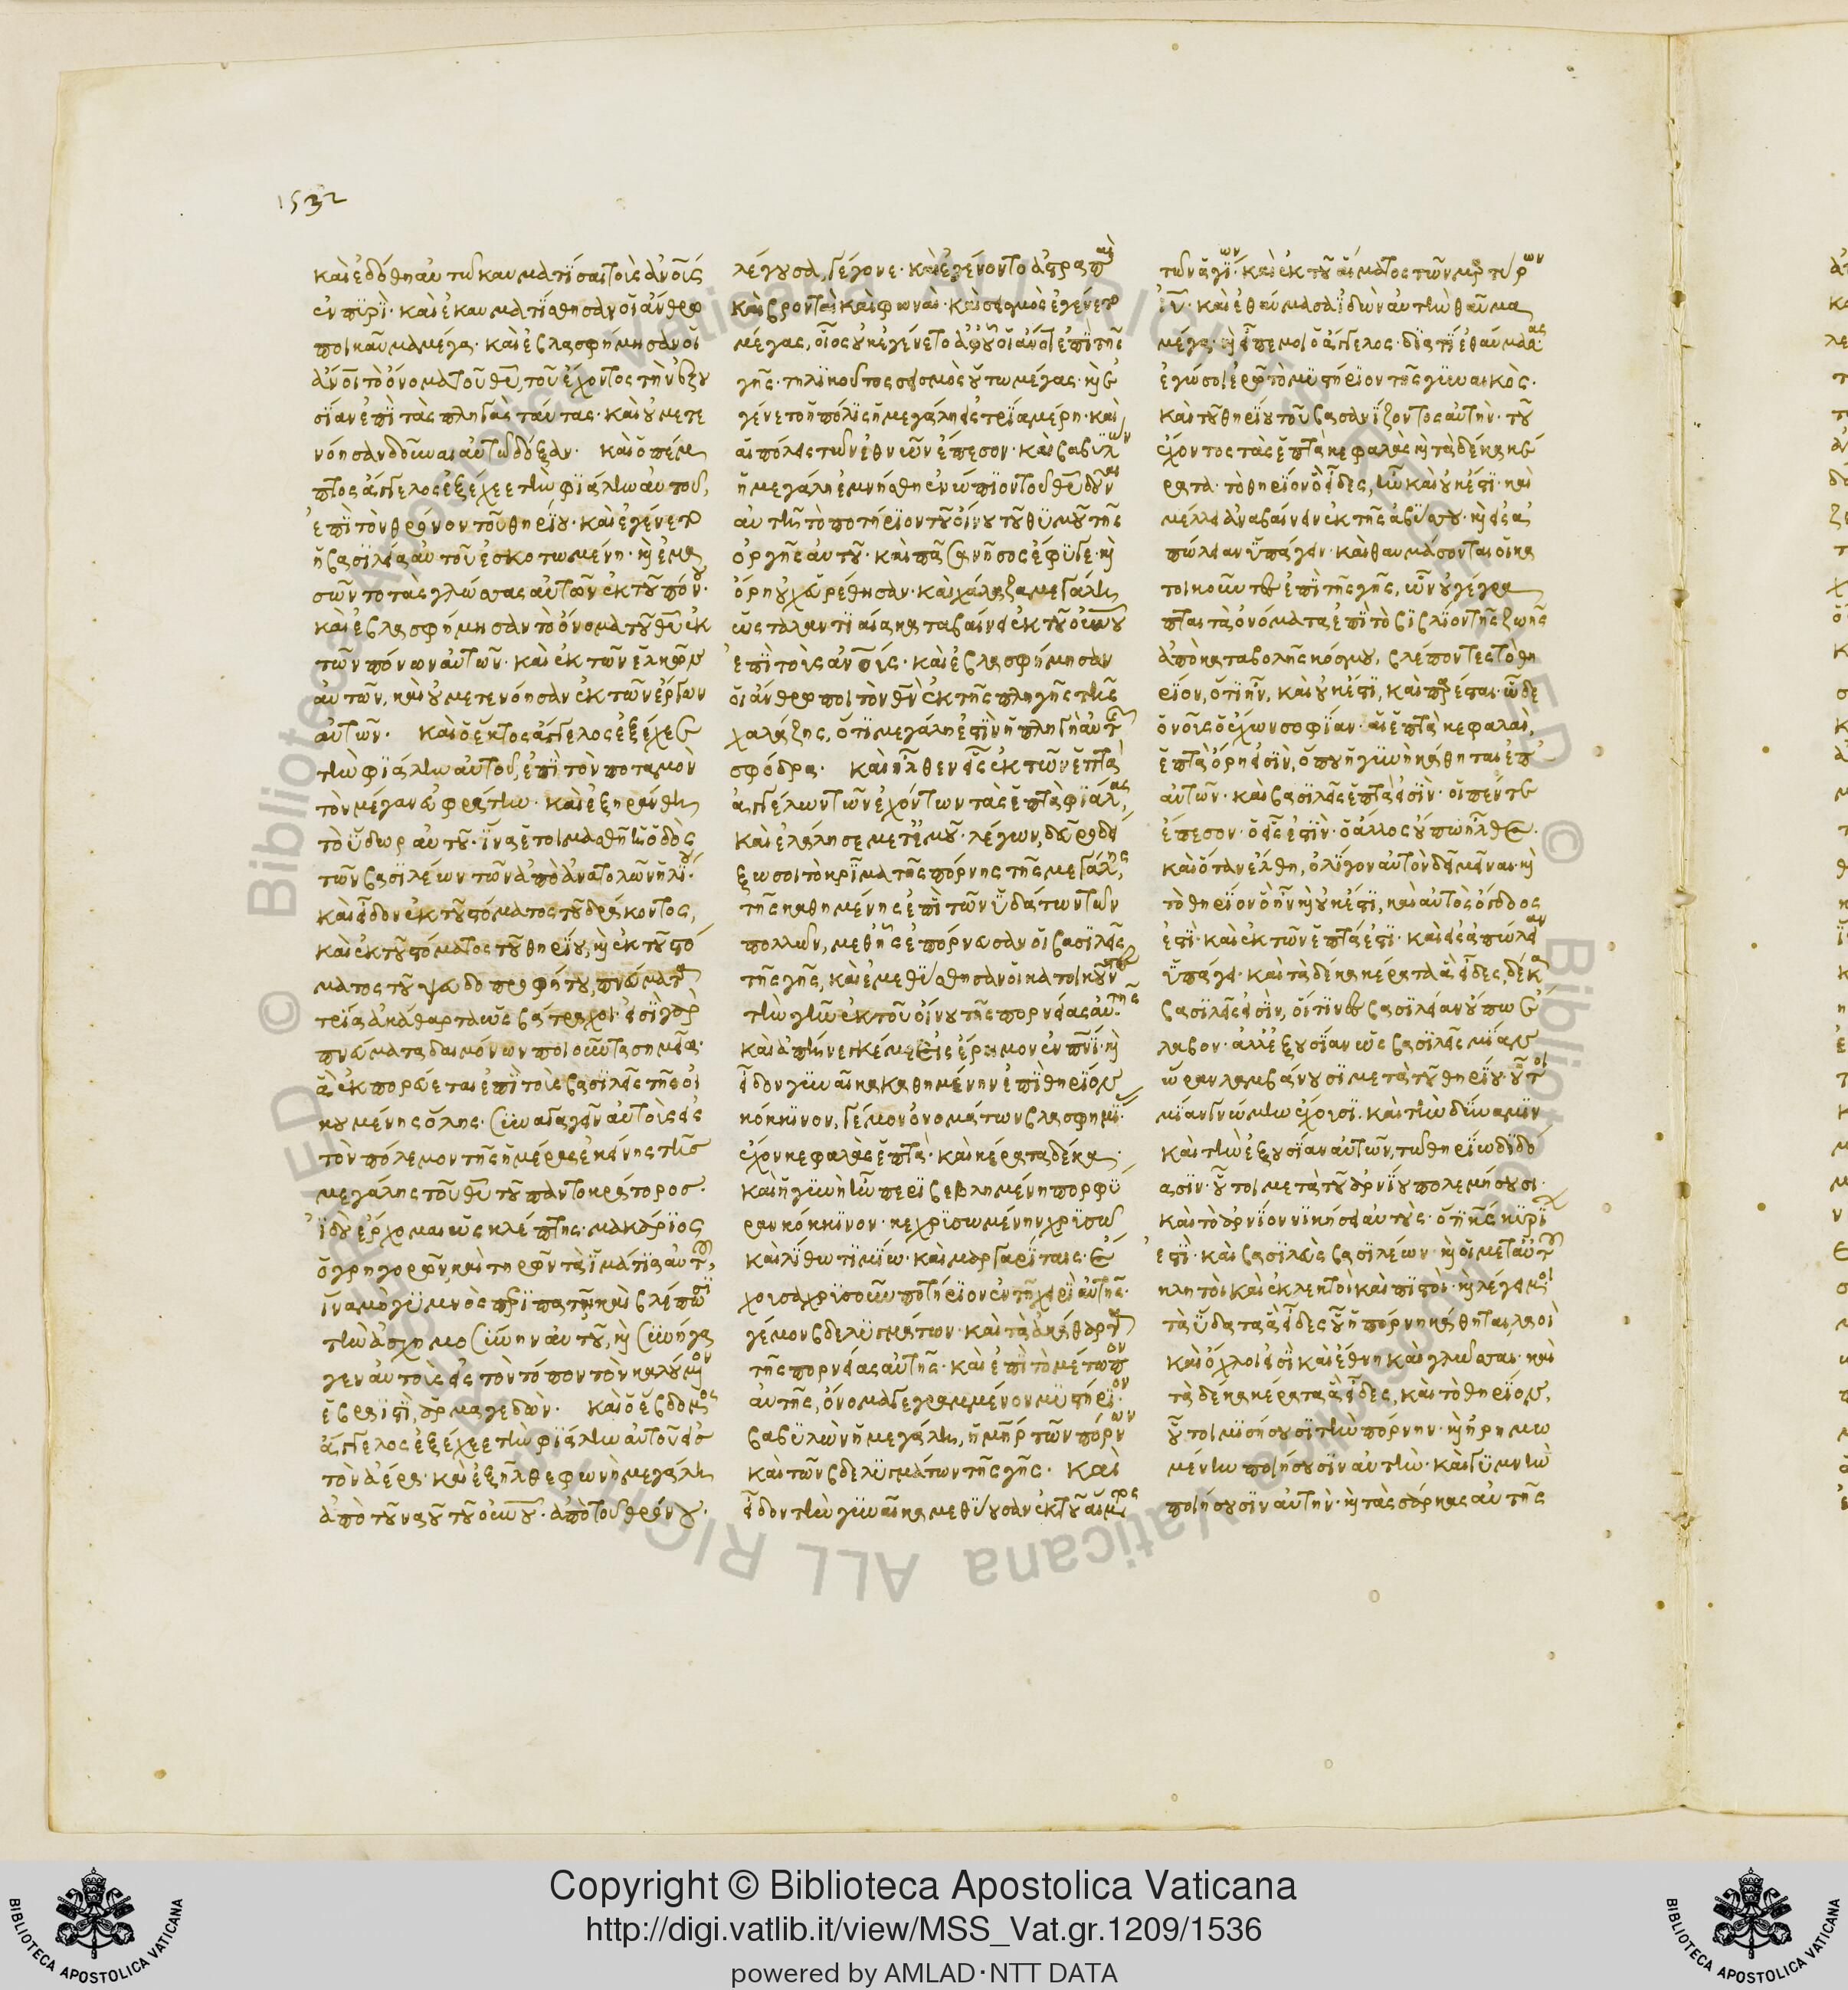 1532
καὶ ἐδόθη αὐτῶ καυματίσαι τοὺς ἀνο̅υ̅ς
ἐν πυρί· καὶ ἐκαυματίσθησαν οἱ ἄνθρω
ποι καῦμα μέγα· καὶ ἐβλασφήμησαν οἱ
ἀνο̅ι̅ τὸ ὄνομα τοῦ θυ̅, τοῦ ἔχοντος τὴν ἐξου
σίαν ἐπὶ τὰς πληγὰς ταύτας· καὶ οὐ μετε
νόησαν δοῦναι αὐτῶ δόξαν· καὶ ὁ πέμ
πτος ἄγγελος ἐξέχεε τὴν φιάλην αὐτοῦ,
ἐπὶ τὸν θρόνον τοῦ θηρίου· καὶ ἐγένετο
ἡ βασιλεία αὐτοῦ ἐσκοτωμένη· καὶ ἐμα
σῶντο τὰς γλώσσας αὐτῶν ἐκ τοῦ πόνου·
καὶ ἐβλασφήμησαν τὸ ὄνομα τοῦ θυ̅ ἐκ
τῶν πόνων αὐτῶν· καὶ ἐκ τῶν ἑλκῶν
αὐτῶν, καὶ οὐ μετενόησαν ἐκ τῶν ἔργων
αὐτῶν· καὶ ὁ ἕκτος ἄγγελος ἐξέχεε
τὴν φιάλην αὐτοῦ, ἐπὶ τὸν ποταμὸν
τὸν μέγαν εὐφράτην· καὶ ἐξηράνθη
τὸ ὕδωρ αὐτοῦ· ἵνα ἑτοιμασθῆ ἡ ὁδὸς
τῶν βασιλέων τῶν ἀπὸ ἀνατολῶν ἡλίου·
καὶ εἶδον ἐκ τοῦ στόματος τοῦ δράκοντος,
καὶ ἐκ τοῦ στόματος τοῦ θηρίου, καὶ ἐκ τοῦ στό
ματος τοῦ ψευδοπροφήτου, πνεύματα
τρία ἀκάθαρτα ὡς βάτραχοι· εἰσὶ γὰρ
πνεύματα δαιμόνων ποιοῦντα σημεῖα·
ἃ ἐκπορεύεται ἐπὶ τοὺς βασιλεῖς τῆς οἰ
κουμένης ὅλης· συναγαγεῖν αὐτοὺς εἰς
τὸν πόλεμον τῆς ἡμέρας ἐκείνης τῆς
μεγάλης τοῦ θυ̅ τοῦ παντοκράτορος·
ἰδοὺ ἔρχομαι ὡς κλέπτης· μακάριος
ὁ γρηγορῶν, καὶ τηρῶν τὰ ἱμάτια αὐτοῦ,
ἵνα μὴ γυμνὸς περιπατῆ καὶ βλέπωσι
τὴν ἀσχημοσύνην αὐτοῦ, καὶ συνήγα
γεν αὐτοὺς εἰς τὸν τόπον τὸν καλούμενον
ἑβραϊστί, ἁρμαγεδών· καὶ ὁ ἕβδομος
ἄγγελος ἐξέχεε τὴν φιάλην αὐτοῦ εἰς
τὸν ἀέρα· καὶ ἐξῆλθε φωνὴ μεγάλη
ἀπὸ τοῦ ναοῦ τοῦ οὐνο̅υ̅· ἀπὸ τοῦ θρόνου·
λέγουσα, γέγονε· καὶ ἐγένοντο ἀστραπαὶ
καὶ βρονταὶ καὶ φωναὶ· καὶ σεισμὸς ἐγένετο
μέγας, οἷος οὐκ ἐγένετο ἀφ' οὗ οἱ ἀνο̅ι̅ ἐπὶ τῆς
γῆς· τηλικοῦτος σεισμὸς οὕτω μέγας· καὶ ἐ
γένετο ἡ πόλις ἡ μεγάλη εἰς τρία μέρη· καὶ
αἱ πόλεις τῶν ἐθνῶν ἔπεσον· καὶ βαβυλὼν
ἡ μεγάλη ἐμνήσθη ἐνώπιον τοῦ θυ̅ δοῦναι
αὐτῆ τὸ ποτήριον τοῦ οἴνου τοῦ θυμοῦ τῆς
ὀργῆς αὐτοῦ· καὶ πᾶσα νῆσος ἔφυγε· καὶ
ὄρη οὐχ εὑρέθησαν· καὶ χάλαζα μεγάλη
ὡς ταλαντιαία καταβαίνει ἐκ τοῦ οὐνο̅υ̅
ἐπὶ τοὺς ἀνο̅υ̅ς· καὶ ἐβλασφήμησαν
οἱ ἄνθρωποι τὸν θν̅ ἐκ τῆς πληγῆς τῆς
χαλάζης, ὅτι μεγάλη ἐστὶν ἡ πληγὴ αὐτῆς
σφόδρα· καὶ ἦλθεν εἷς ἐκ τῶν ἑπτὰ
ἀγγέλων τῶν ἐχόντων τὰς ἑπτὰ φιάλας,
καὶ ἐλάλησε μετ' ἐμοῦ· λέγων, δεῦρο δεί
ξω σοι τὸ κρῖμα τῆς πόρνης τῆς μεγάλης,
τῆς καθημένης ἐπὶ τῶν ὑδάτων τῶν
πολλῶν, μεθ' ἧς ἐπόρνευσαν οἱ βασιλεῖς
τῆς γῆς, καὶ ἐμεθύσθησαν οἱ κατοικοῦντες
τὴν γῆν ἐκ τοῦ οἴνου τῆς πορνείας αὐτῆς·
καὶ ἀπήνεγκέ με εἰς ἔρημον ἐν πνι̅· καὶ
εἶδον γυναῖκα καθημένην ἐπὶ θηρίον
κόκκινον, γέμον ὀνομάτων βλασφημίας·
ἔχον κεφαλὰς ἑπτὰ· καὶ κέρατα δέκα·
καὶ ἡ γυνὴ ἦν περιβεβλημένη πορφύ
ραν κόκκινον· κεχρυσωμένην χρυσῶ
καὶ λίθω τιμίω· καὶ μαργαρίταις· ἔ
χουσα χρυσοῦν ποτήριον ἐν τῆ χειρὶ αὐτῆς·
γέμον βδελυγμάτων· καὶ τὰ ἀκάθαρτα
τῆς πορνείας αὐτῆς· καὶ ἐπὶ τὸ μέτωπον
αὐτῆς, ὄνομα γεγραμμένον μυστήριον·
βαβυλὼν ἡ μεγάλη, ἡ μη̅ρ τῶν πόρνων
καὶ τῶν βδελυγμάτων τῆς γῆς· καὶ
εἶδον τὴν γυναῖκα μεθύουσαν ἐκ τοῦ αἵματος
τῶν ἁγίων· καὶ ἐκ τοῦ αἵματος τῶν μαρτύρων
ιυ̅· καὶ ἐθαύμασα ἰδὼν αὐτὴν θαῦμα
μέγα· καὶ εἶπέ μοι ὁ ἄγγελος· διατί ἐθαύμασας·
ἐγώ σοι ἐρῶ τὸ μυστήριον τῆς γυναικὸς·
καὶ τοῦ θηρίου τοῦ βαστάζοντος αὐτὴν· τοῦ
ἔχοντος τὰς ἑπτὰ κεφαλὰς καὶ τὰ δέκα κέ
ρατα· τὸ θηρίον ὃ εἶδες, ἦν καὶ οὐκ ἔστι· καὶ
μέλλει ἀναβαίνειν ἐκ τῆς ἀβύσσου· καὶ εἰς ἀ
πώλειαν ὑπάγειν· καὶ θαυμάσονται οἱ κα
τοικοῦντες ἐπὶ τῆς γῆς, ὧν οὐ γέγρα
πται τὰ ὀνόματα ἐπὶ τὸ βιβλίον τῆς ζωῆς
ἀπὸ καταβολῆς κόσμου, βλέποντες τὸ θη
ρίον, ὅτι ἦν, καὶ οὐκ ἔστι, καὶ πάρεσται· ὧδε
ὁ νοῦς ὁ ἔχων σοφίαν· αἱ ἑπτὰ κεφαλαὶ,
ἑπτὰ ὄρη εἰσὶν, ὅπου ἡ γυνὴ κάθηται ἐπ'
αὐτῶν· καὶ βασιλεῖς ἑπτά εἰσιν· οἱ πέντε
ἔπεσον· ὁ εἷς ἐστὶν· ὁ ἄλλος οὔπω ἦλθε·
καὶ ὅταν ἔλθη, ὀλίγον αὐτὸν δεῖ μεῖναι· καὶ
τὸ θηρίον ὃ ἦν καὶ οὐκ ἔστι, καὶ αὐτὸς ὄγδοος
ἐστὶ· καὶ ἐκ τῶν ἑπτά ἐστι· καὶ εἰς ἀπώλειαν
ὑπάγει· καὶ τὰ δέκα κέρατα ἃ εἶδες, δέκα
βασιλεῖς εἰσὶν, οἵτινες βασιλείαν οὔπω ἔ
λαβον· ἀλλ' ἐξουσίαν ὡς βασιλεῖς μίαν
ὥραν λαμβάνουσι μετὰ τοῦ θηρίου· οὗτοι
μίαν γνώμην ἔχουσι· καὶ τὴν δύναμιν
καὶ τὴν ἐξουσίαν αὐτῶν, τῶ θηρίω διδό
ασιν· οὗτοι μετὰ τοῦ ἀρνίου πολεμήσουσι·
καὶ τὸ ἀρνίον νικήσει αὐτοὺς· ὅτι κς̅ κυρίων
ἐστὶ· καὶ βασιλεὺς βασιλέων· καὶ οἱ μετ' αὐτοῦ
κλητοὶ καὶ ἐκλεκτοὶ καὶ πιστοὶ· καὶ λέγει μοι
τὰ ὕδατα ἃ εἶδες οὗ ἡ πόρνη κάθηται, λαοὶ
καὶ ὄχλοι εἰσὶ καὶ ἔθνη καὶ γλῶσσαι· καὶ
τὰ δέκα κέρατα ἃ εἶδες, καὶ τὸ θηρίον,
οὗτοι μισήσουσι τὴν πόρνην· καὶ ἠρημω
μένην ποιήσουσιν αὐτὴν· καὶ γυμνὴν
ποιήσουσιν αὐτὴν· καὶ τὰς σάρκας αὐτῆς
Copyright © Biblioteca Apostolica Vaticana
http://digi.vatlib.it/view/MSS_Vat.gr.1209/1536
powered by AMLAD·NTT DATA
BIBLIOTECA APOSTOLICA VATICANA
BIBLIOTECA APOSTOLICA VATICANA
© Biblioteca Apostolica Vaticana ALL RIGHTS RESERVED